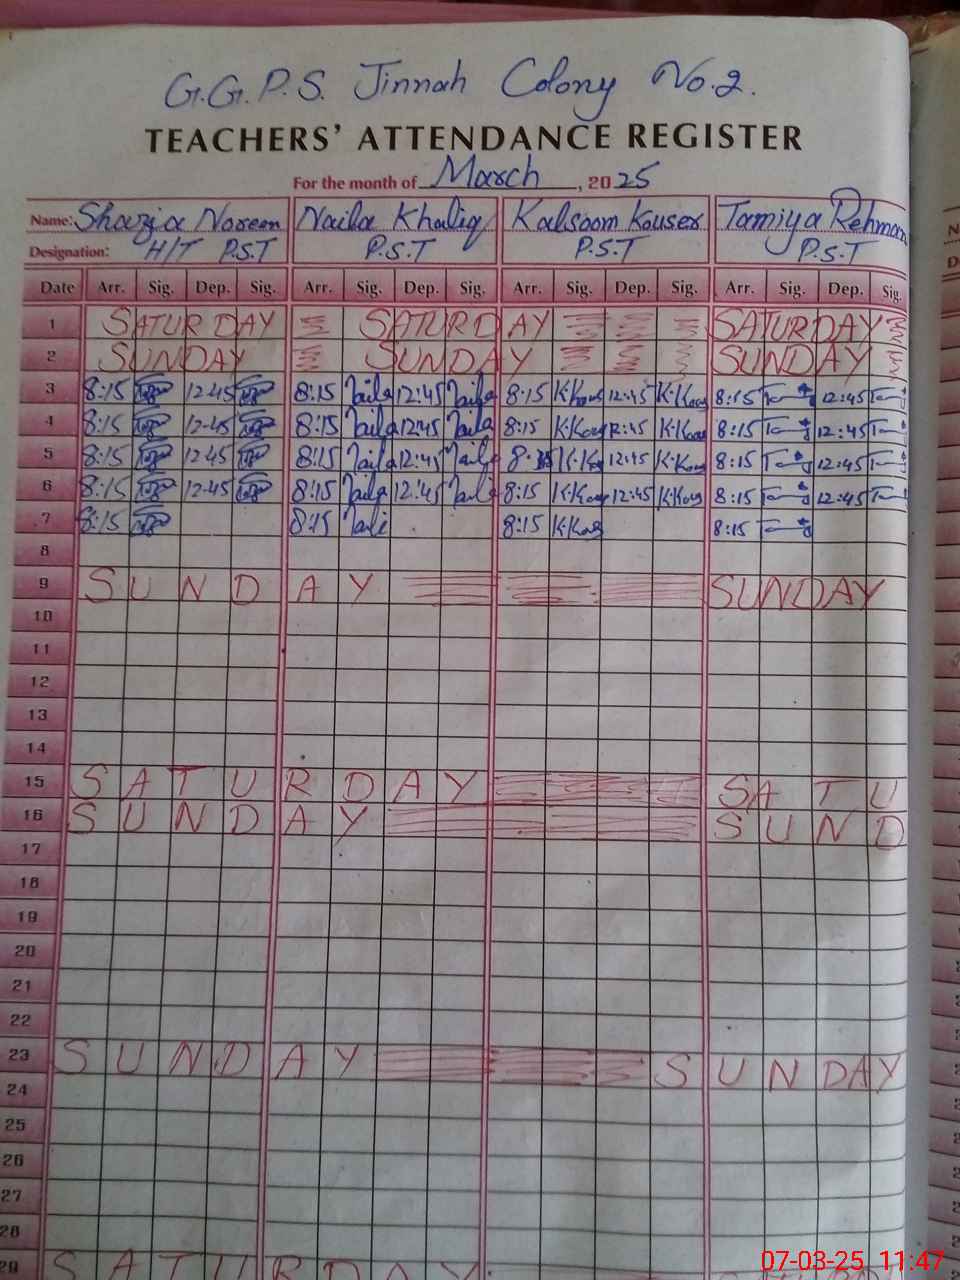 G.G.P.S. Jinnah Colony No.2.
TEACHERS' ATTENDANCE REGISTER
For the month of March, 2025
Name: Shazia Noreen Naila Khaliq Kalsoom Kouser Tamiya Rehman
Designation: H/T P.S.T P.S.T P.S.T P.S.T
Date Arr. Sig. Dep. Sig. Arr. Sig. Dep. Sig. Arr. Sig. Dep. Sig. Arr. Sig. Dep. Sig.
1 SATURDAY SATURDAY SATURDAY
2 SUNDAY SUNDAY SUNDAY
3 8:15 12-45 8:15 Naila 12:45 Naila 8:15 K.Kous 12:45 K.Kous 8:15 12:45
4 8:15 12-45 8:15 Naila 12:45 Naila 8:15 K.Kous 12:45 K.Kous 8:15 12:45
5 8:15 12-45 8:15 Naila 12:45 Naila K.Kous 12:45 K.Kous 8:15 12:45
6 8:15 12-45 8:15 Naila 12:45 Naila 8:15 K.Kous 12:45 K.Kous 8:15 12:45
7 8:15 8:15 Naila 8:15 K.Kous 8:15
8
9 SUNDAY SUNDAY
10
11
12
13
14
15 SATURDAY SATU
16 SUNDAY SUND
17
18
19
20
21
22
23 SUNDAY SUNDAY
24
25
26
27
28
29 SATURDAY
07-03-25 11:47